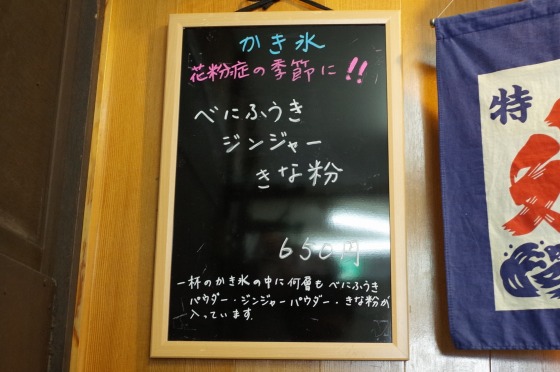 かき氷
花粉症の季節に!!
べにふうき
ジンジャー
きな粉
650円
一杯のかき氷の中に何層もべにふうき
パウダー・ジンジャーパウダー・きな粉が
入っています。
特